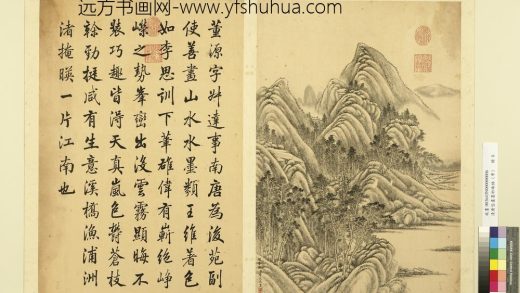 远方书画网-www.yfshuhua.com
董源字叔達事南唐為後苑副
使善畫山水水墨類王維著色
如李思訓下筆雄偉有嶄絕崢
嶸之勢峯巒出沒雲霧顯晦不
裝巧趣皆得天真嵐色鬱蒼枝
榦勁挺咸有生意溪橋漁浦洲
渚掩暎一片江南也